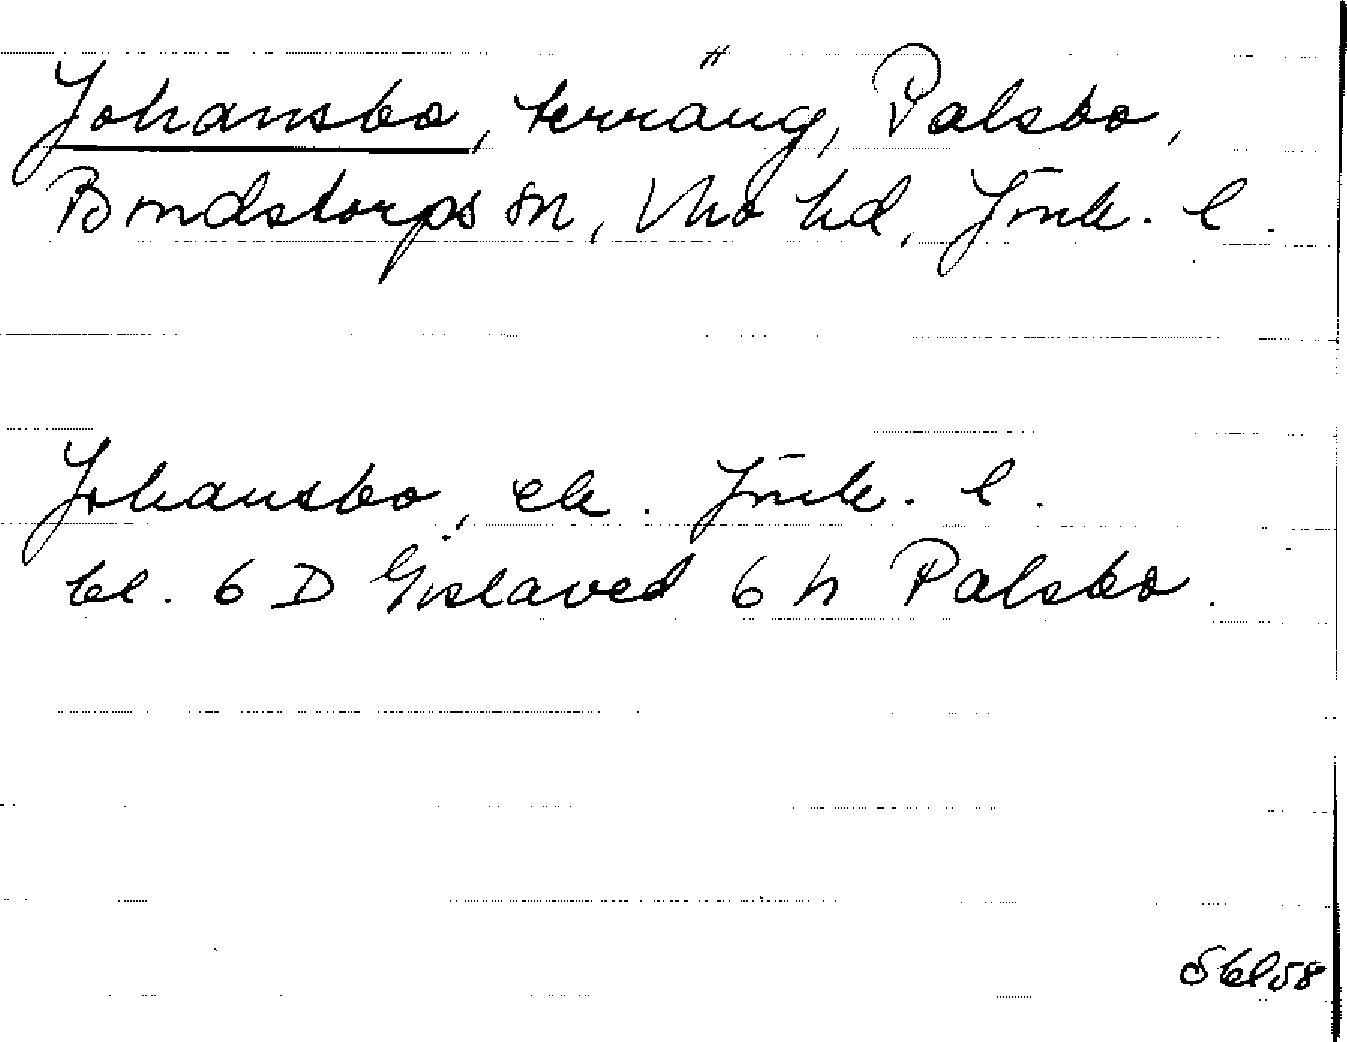 Johansbo, terräng, Palsbo,
Bondstorps sn, Mo hd, Jönk. l.
Johansbo, ek. Jönk. l.
bl. 6 D Gislaved 6 h Palsbo.